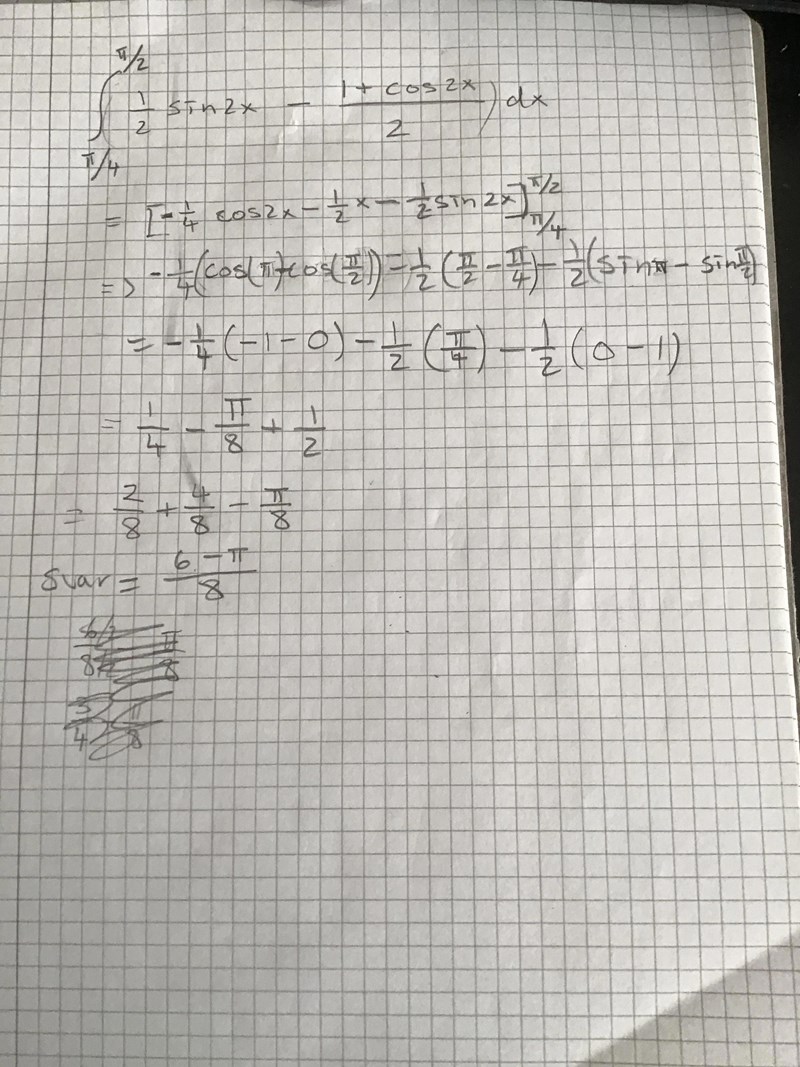 ∫_{π/4}^{π/2} 1/2 sin2x − (1+cos2x)/2) dx
= [−1/4 cos2x − 1/2 x − 1/2 sin 2x]_{π/4}^{π/2}
=> −1/4(cos(π)−cos(π/2)) − 1/2 (π/2 − π/4) − 1/2 (sinπ − sin π/2)
= −1/4 (−1−0) − 1/2 (π/4) − 1/2 (0−1)
= 1/4 − π/8 + 1/2
= 2/8 + 4/8 − π/8
svar = (6−π)/8